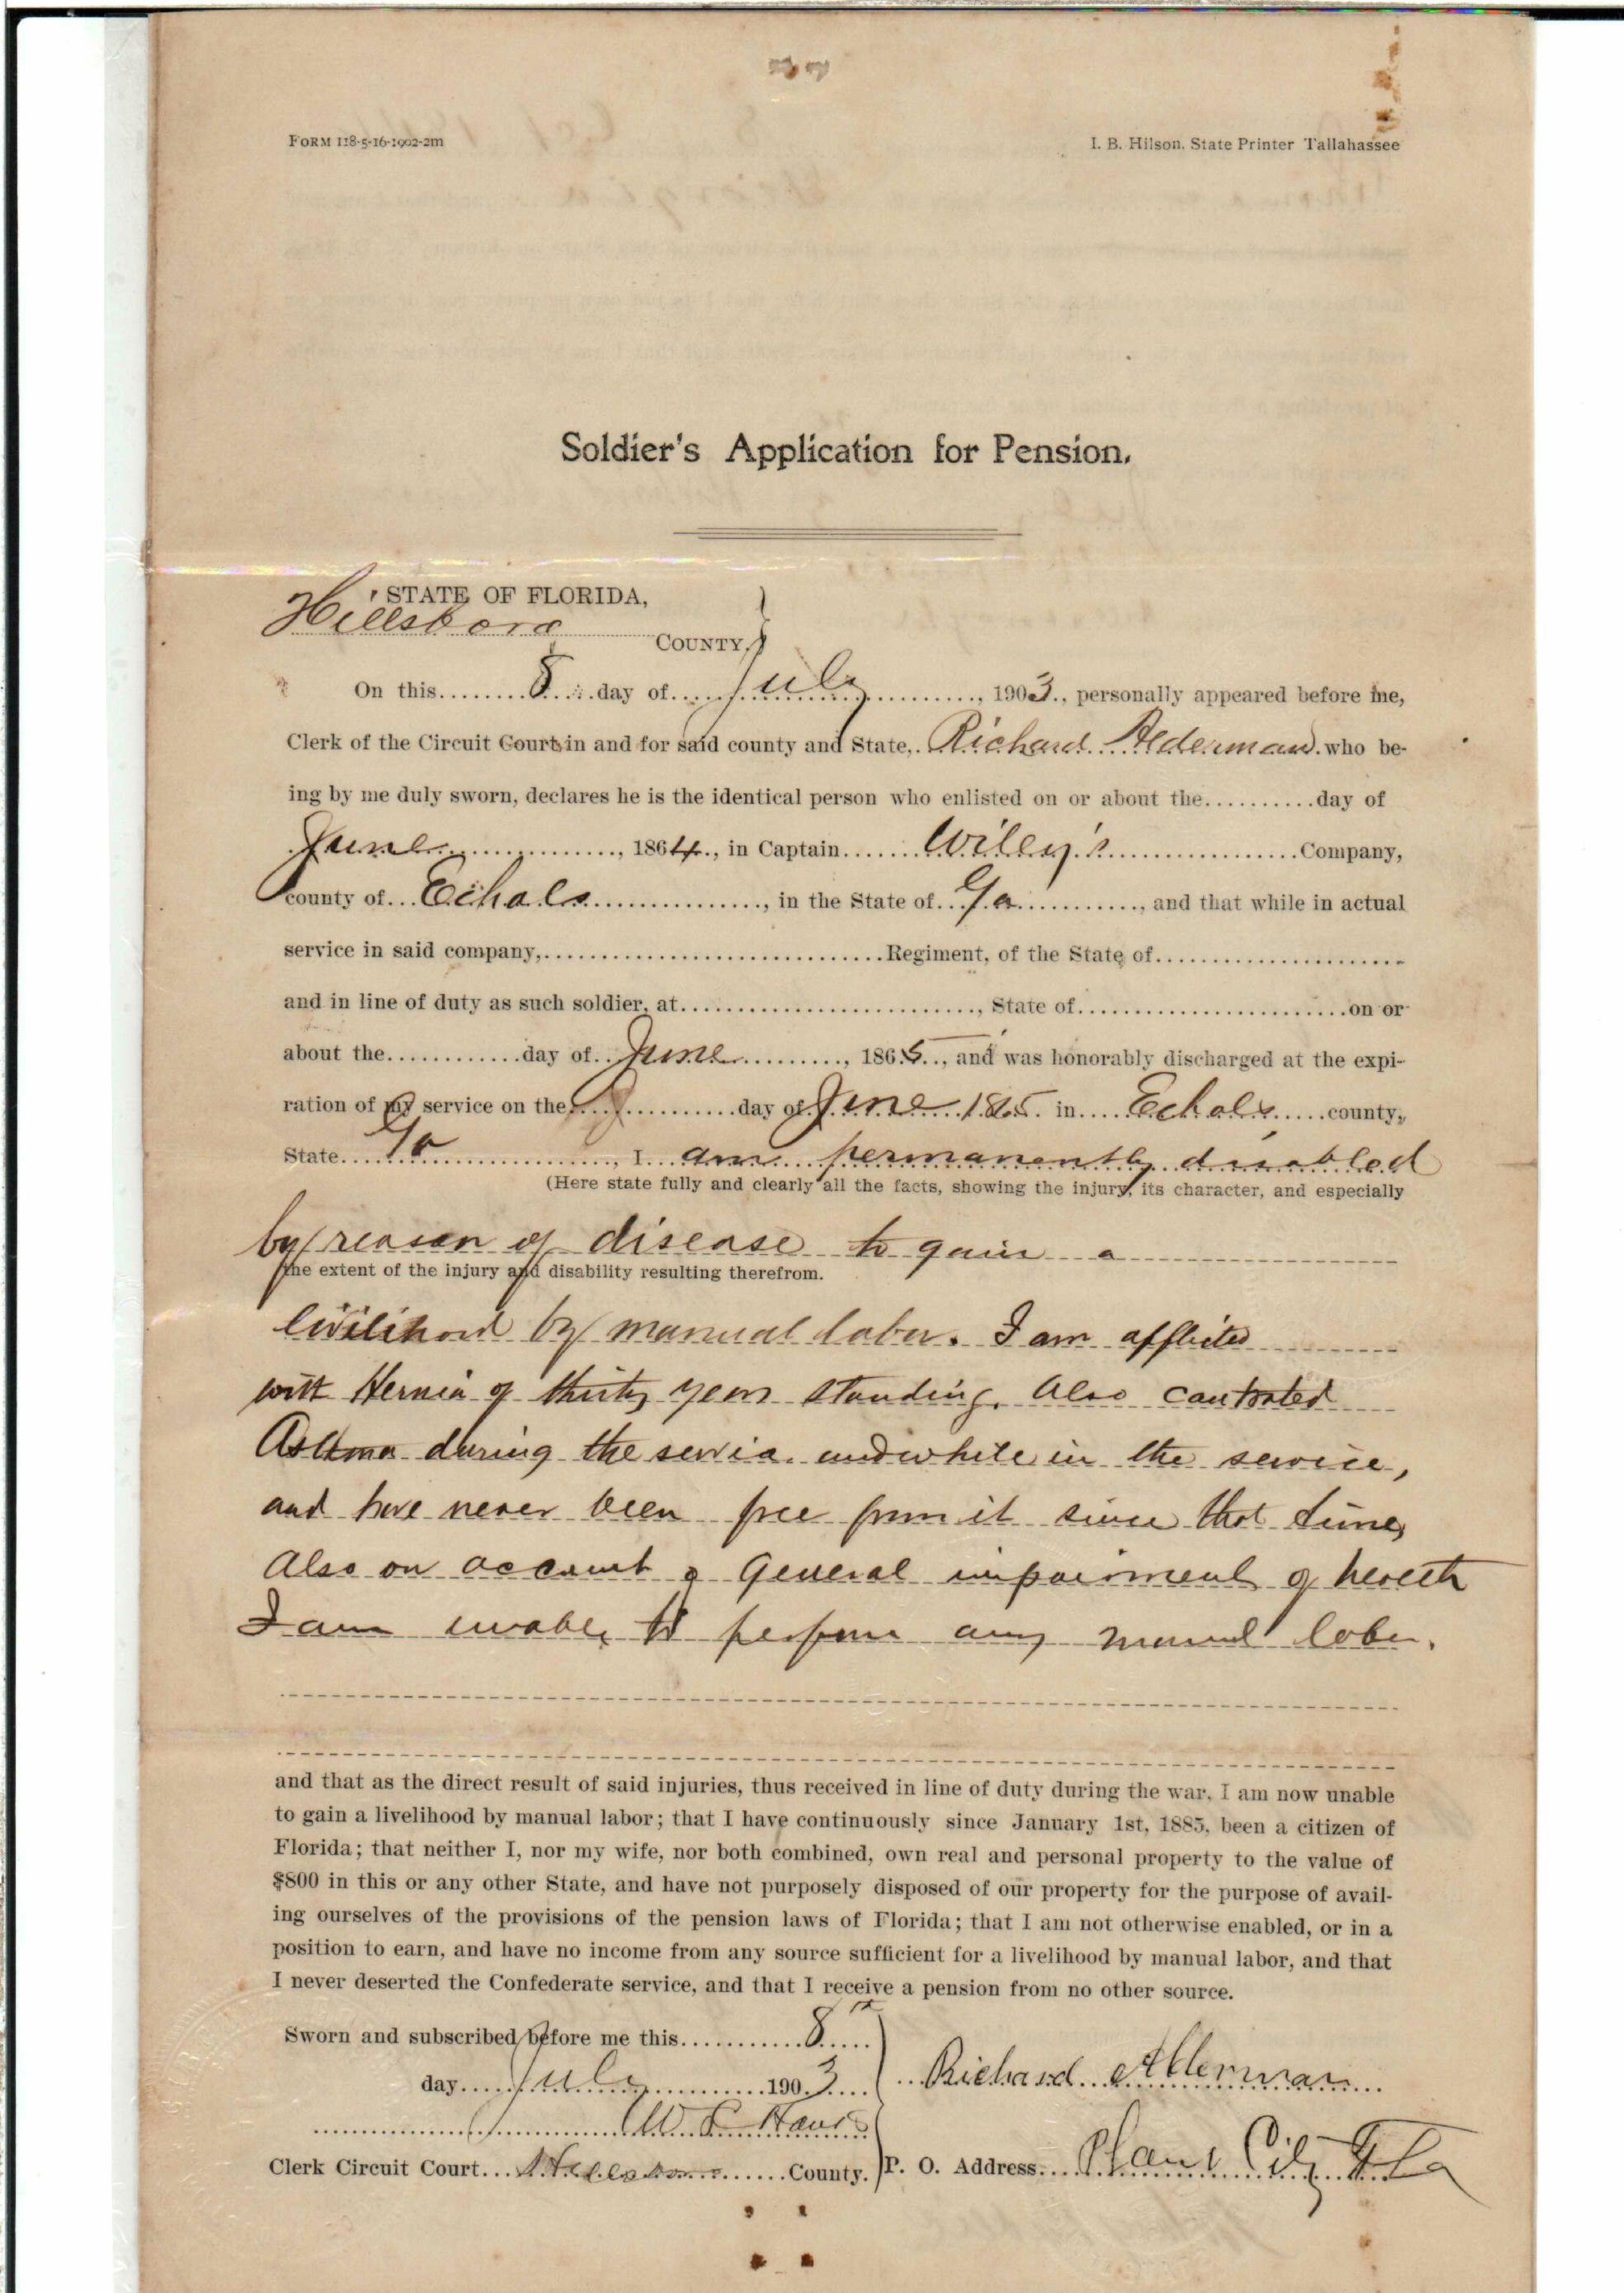 FORM 118-5-16-1902-2m
I. B. Hilson, State Printer Tallahassee
Soldier's Application for Pension.
STATE OF FLORIDA,
Hillsboro COUNTY.
On this 8 day of July, 1903, personally appeared before me,
Clerk of the Circuit Court in and for said county and State, Richard Alderman who be-
ing by me duly sworn, declares he is the identical person who enlisted on or about the..........day of
June, 1864, in Captain Wiley's Company,
county of Echols, in the State of Ga, and that while in actual
service in said company,..............................Regiment, of the State of......................
and in line of duty as such soldier, at.........................., State of........................on or
about the............day of June, 1865, and was honorably discharged at the expi-
ration of my service on the day of June 1865 in Echols county,
State Ga, I am permanently disabled
(Here state fully and clearly all the facts, showing the injury, its character, and especially
by reason of disease to gain a
the extent of the injury and disability resulting therefrom.
livilihood by manual labor. I am afflicted
with Hernia of thirty years standing. Also contrated
Astma during the servic. and while in the service,
and have never been free from it since that time,
Also on account of General impairment of health
I am unable to perform any manual labor.
and that as the direct result of said injuries, thus received in line of duty during the war, I am now unable
to gain a livelihood by manual labor; that I have continuously since January 1st, 1885, been a citizen of
Florida; that neither I, nor my wife, nor both combined, own real and personal property to the value of
$800 in this or any other State, and have not purposely disposed of our property for the purpose of avail-
ing ourselves of the provisions of the pension laws of Florida; that I am not otherwise enabled, or in a
position to earn, and have no income from any source sufficient for a livelihood by manual labor, and that
I never deserted the Confederate service, and that I receive a pension from no other source.
Sworn and subscribed before me this 8th
day July 1903
Richard Alderman
W
Clerk Circuit Court Hillsboro County.
P. O. Address Plant City Fla